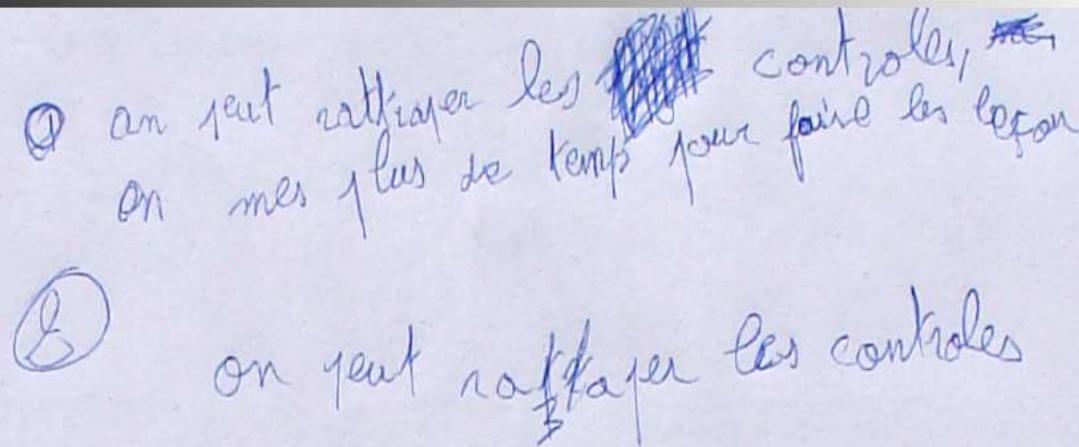 ① on peut rattraper les controles,
on mes plus de temp pour faire les leçon
② on peut rattraper les controles